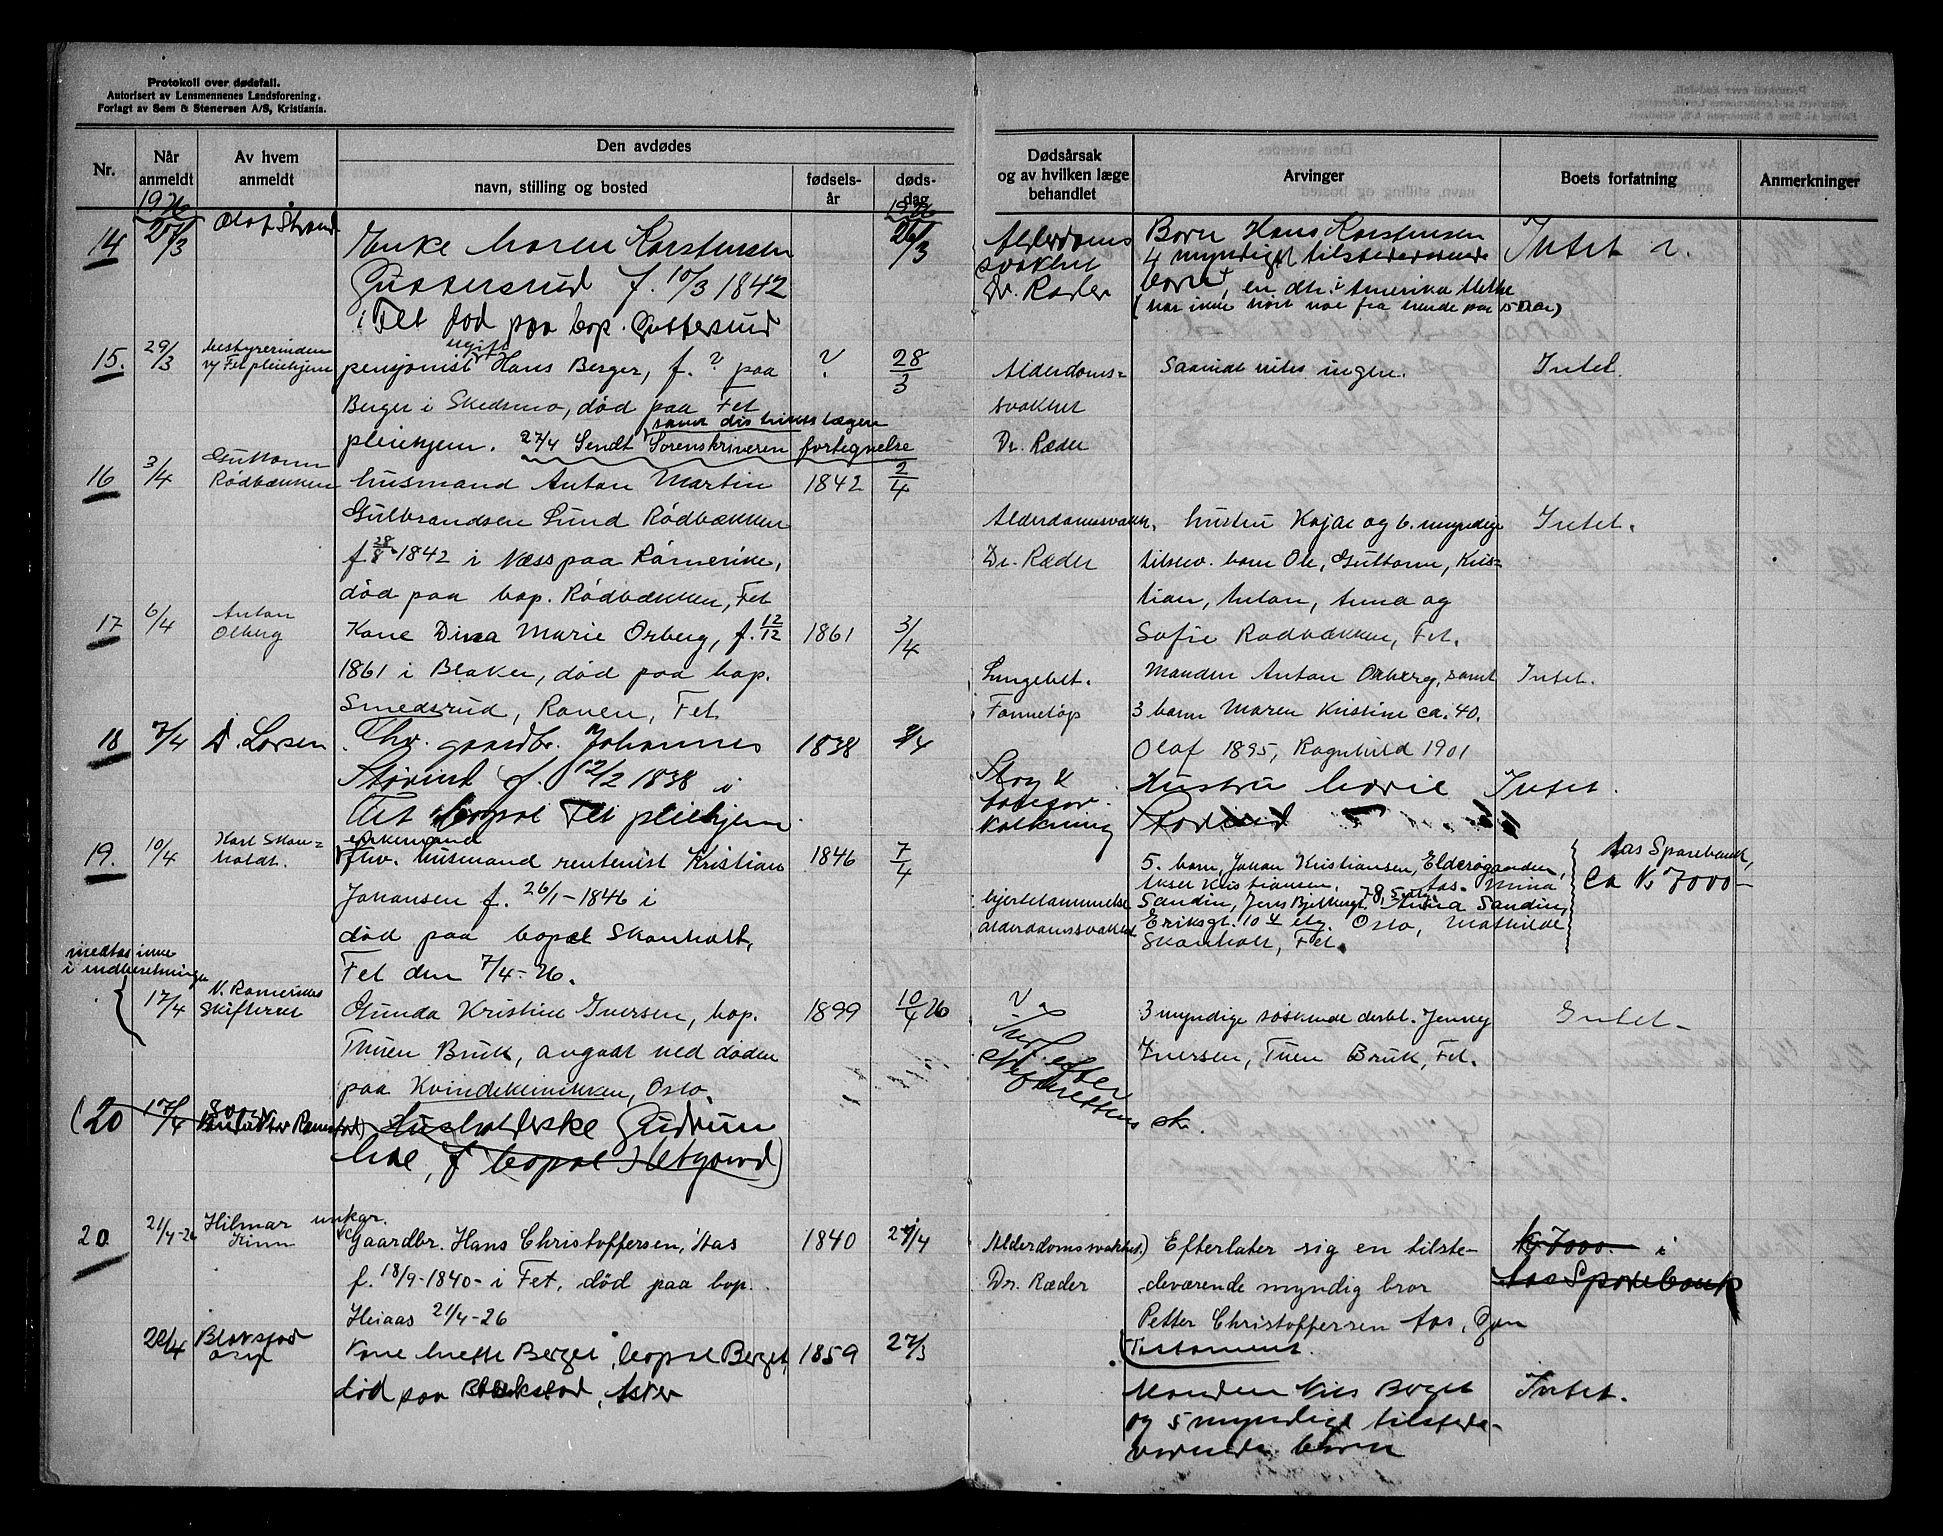 Protokoll over dødsfall.
Autorisert av Lensmennenes Landsforening.
Forlagt av Sem & Stenersen A/S, Kristiania.
Nr.
Når anmeldt
Av hvem anmeldt
Den avdødes
navn, stilling og bosted
fødselsår
dødsdag
Dødsårsak og av hvilken læge behandlet
Arvinger
Boets forfatning
Anmerkninger
1926
1926
14
27/3
Olaf Strand
Enke Maren Karstensen
Guttersrud f. 10/3 1842
i Fet død paa bop. Guttersrud
26/3
Alderdoms
svakhet
Dr. Ræder
Børn Hans Karstensen
4 myndiget tilstedeværende
børn, en dtr. i Amerika
15.
29/3
bestyrerinden
v/ Fet pleiehjem
ugift
pensjonist Hans Berger, f. ? paa
Berger i Skedsmo, død paa Fet
samt distriktslægen
pleiehjem. 27/4 Sendt Sorenskriveren fortegnelse
?
28/3
Alderdoms-
svakhet
Dr. Ræder
Saavidt vites ingen.
Intet.
16
3/4
Guttorm
Rødbækken
husmand Anton Martin
Gulbrandsen Lund Rødbækken
f. 28/8-1842 i Næss paa Romerike,
død paa bop. Rødbækken, Fet
1842
2/4
Alderdomssvakh.
Dr. Ræder
hustru Kajae og 6. myndige
tilstev. barn Ole, Guttorm, Kris-
tian, Anton, Anna og
Sofie Rødbækken, Fet.
Intet.
17
6/4
Anton
Olberg
Kone Dina Marie Orberg, f. 12/12
1861 i Blaker, død paa bop.
Smedsrud, Roven, Fet
1861
3/4
Lungebet.
Manden Anton Orberg, samt
3 barn Maren Kristine ca. 40.
Olaf 1895, Ragnhild 1901
Intet.
18
7/4
A. Larsen
Fhv. gaardbr. Johannes
f. 12/2 1838 i
Fet bopæl Fet pleiehjem
1838
Slag &
kalkning
Hustru Marie
Intet.
19.
10/4
Karl Skan-
holdt.
enkemand
Fhv. husmand rentenist Kristian
Johansen f. 26/1-1846 i
død paa bopæl Skanholt,
Fet den 7/4-26.
1846
7/4
hjertelammelse
alderdomssvakhet
5. børn, Johan Kristiansen,
Aksel Kristiansen, Aas. Mina
Sandin, Jens Anna Sandin,
Eriksgt. 10 4 etg. Oslo, Mathilde
Skanholt, Fet.
Aas Sparebank,
Ca Kr 7000-
medtas ikke
i indberetningen
17/4
N. Romerikes
Skifteret
Gunda Kristine Iversen, bop.
Tuen Bruk, avgaat ved døden
paa Kvindeklinikken, Oslo.
1899
10/4 26
?
Inf. efter
3 myndige søskende derbl. Jenny
Iversen, Tuen Bruk, Fet.
Intet-
(20
17/4
Husholderske Gudrun
Moe, f bopæl
20
21/4-26
Hilmar
Kinn
unkar.
Gaardbr. Hans Christoffersen, Aas
f. 18/9-1840- i Fet, død paa bop.
Heiaas 21/4-26
1840
21/4
Alderdomssvakhet.)
Dr. Ræder
Efterlater sig en tilste-
deværende myndig bror
Petter Christoffersen Aas,
Testament.
Kr 7000.- i
Aas Sparebank
20/4
Blakstad
asyl
Kone Anette Berget, bopæl Berget,
død paa Blakstad, Asker
1859
27/3
Manden Nils Berget
og 5 myndige tilstede-
værende børn
Intet.